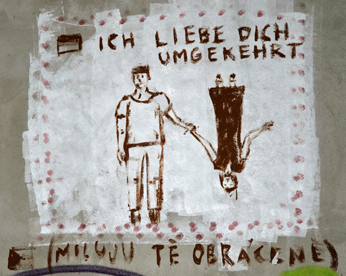 ICH LIEBE DICH
UMGEKEHRT
(MILUJU TĚ OBRÁCENĚ)